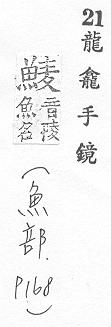 21 龍龕手鏡
鯪
音陵
魚名
(魚部. P168)